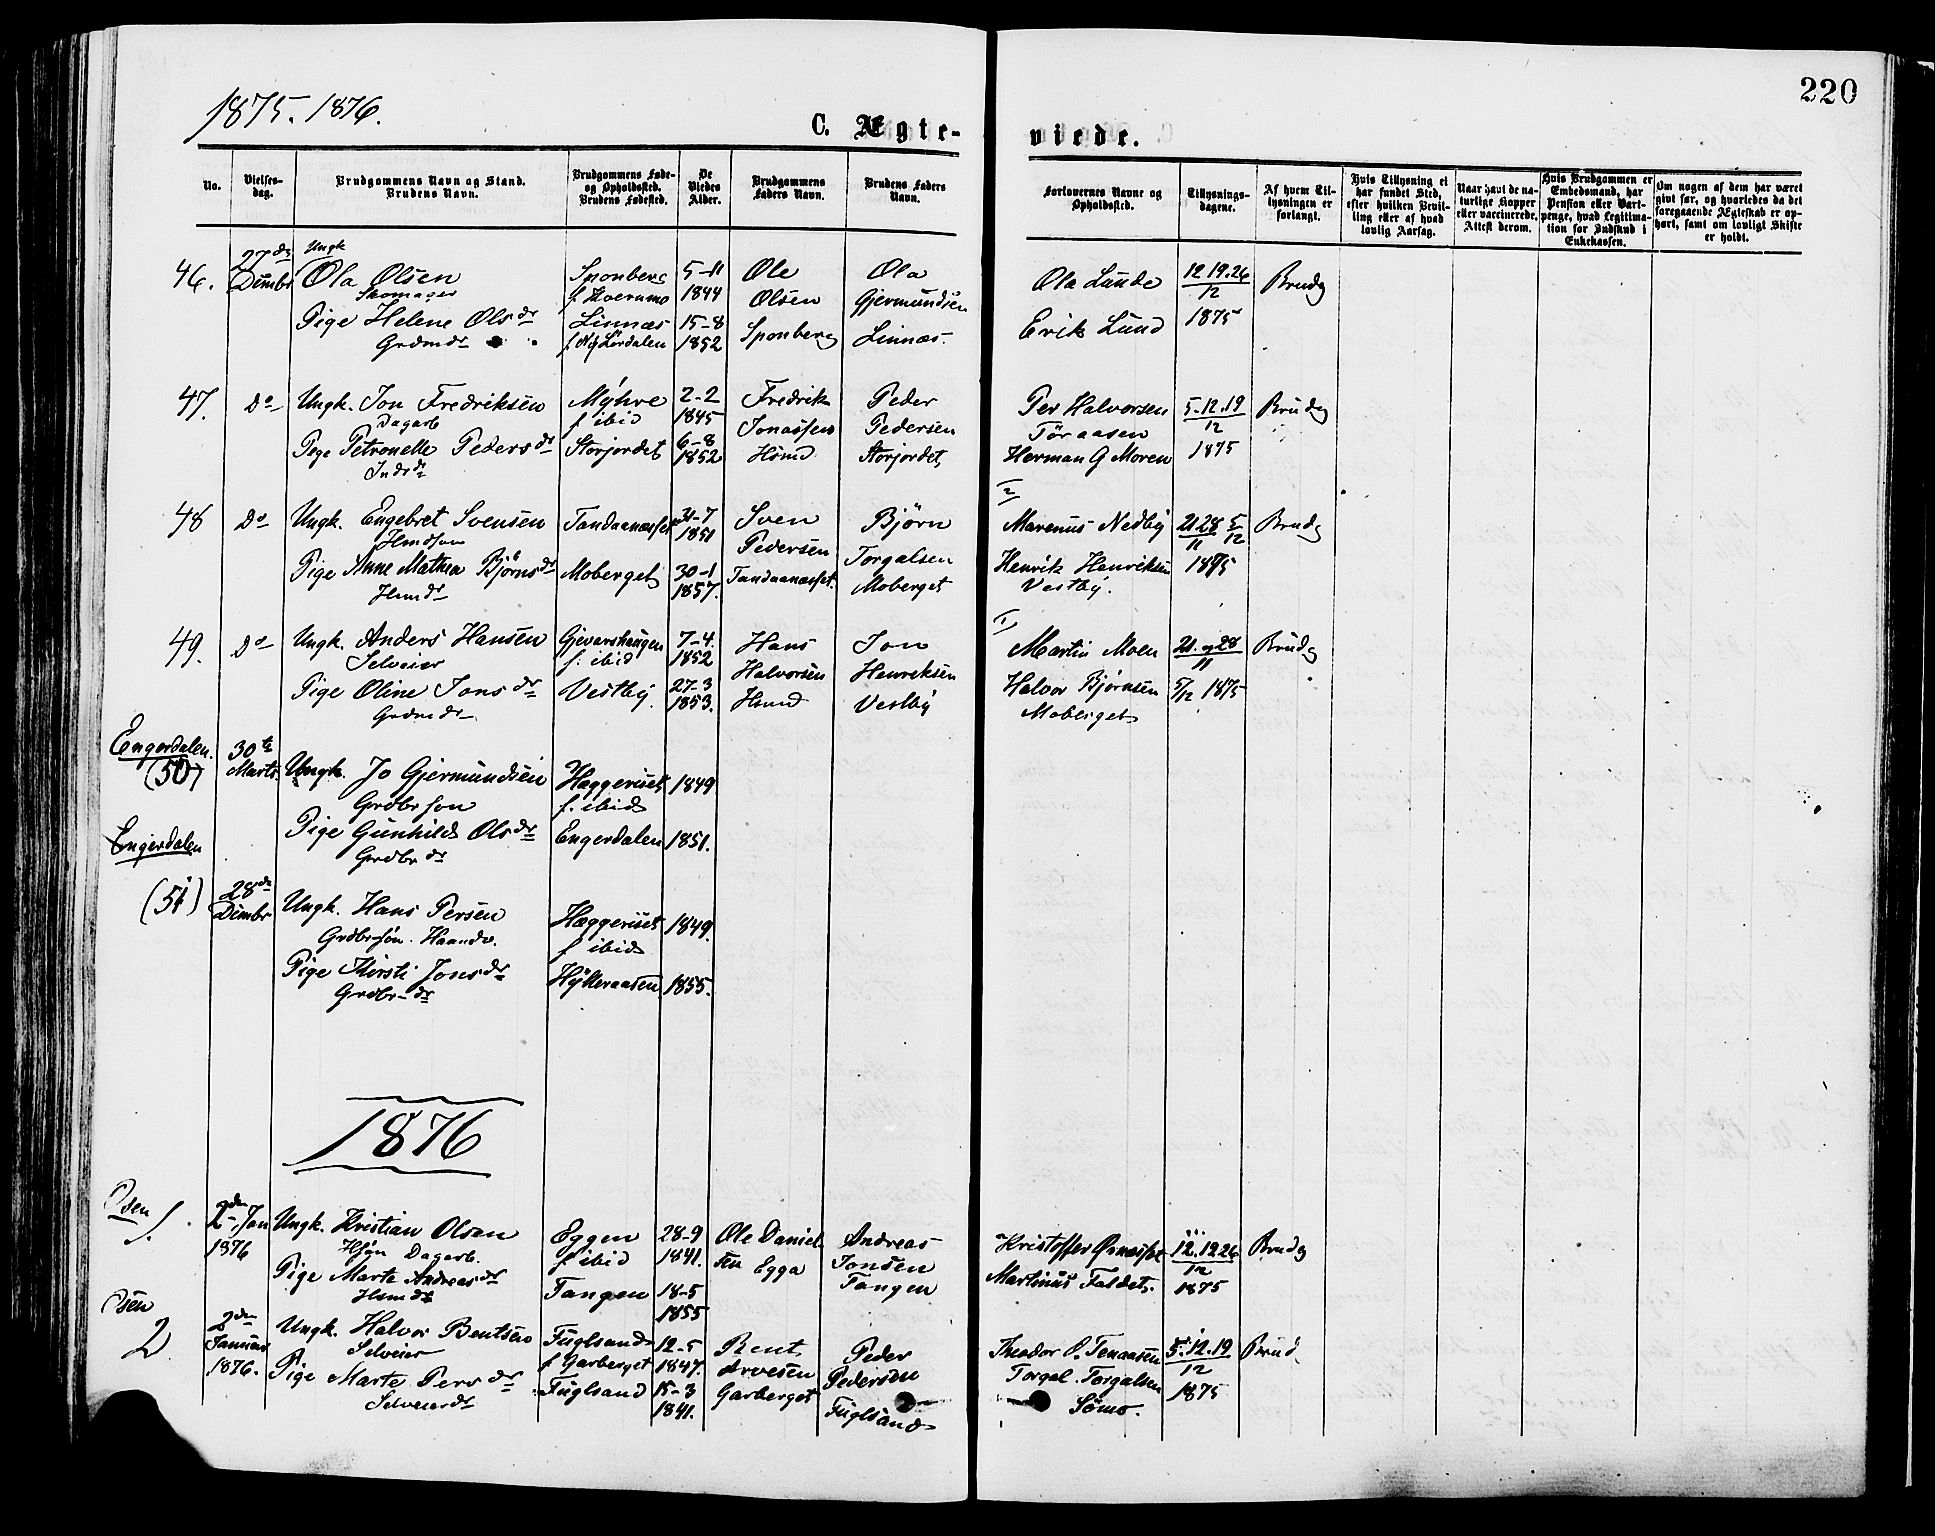 220
1875. 1876.
C. Ægte-
viede.
No.
Vielses-
dag.
Brudgommens Navn og Stand.
Brudens Navn.
Brudgommens Føde-
og Opholdssted.
Brudens Fødested.
De
Viedes
Alder.
Brudgommens
Faders Navn.
Brudens Faders
Navn.
Forlovernes Navne og
Opholdssted.
Tillysnings-
dagene.
Af hvem Til-
lysningen er
forlangt.
Hvis Tillysning ei
har fundet Sted,
efter hvilken Bevil-
ling eller af hvad
lovlig Aarsag.
Naar havt de na-
turlige Kopper
eller vaccinerede.
Attest derom.
Hvis Brudgommen er
Embedsmand, har
Pension eller Vart-
penge, hvad Legitima-
tion for Indskud i
Enkekassen.
Om nogen af dem har været
givt før, og hvorledes da det
foregaaende Ægteskab er op-
hørt, samt om lovligt Skifte
er holdt.
46.
27de
Dēmbr
Ungk
Ola Olsen
Skomager
Pige Helene Olsdr
Grdmdr
Sponberg
f. Kvernmo
Linnæs
5-11
1844
15-8
1852
Ole
Olsen
Sponberg
Ola
Gjermundsen
Linnæs.
Ola Lunde
Erik Lund
12.19.26
12
1875
Brudg
47.
Do
Ungk. Jon Fredriksen
Dagarb
Pige Petronelle Pedersdr
Indrdr
Myhre
f ibid
Storjordet
2-2
1845
6-8
1852
Fredrik
Jonassen
Peder
Pedersen
Storjordet
Per Halvorsen
Töraasen
Herman G Moren
5.12.19
12
1875
Brudg
48
Do
Ungk. Engebret Svensen
Pige Anne Mathea Björnsdr
Hsmdr
Tandaanæsset
Moberget
31-7
1851
30-1
1857.
Sven
Pedersen
Tandaanæsset.
Bjørn
Torgalsen
Moberget
Marenus Nedby
Henrik Henriksen
Vestby.
21.28 5
11 12
1875
Brudg
49.
Do
Ungk. Anders Hansen
Selveier
Pige Oline Jonsdr
Grdmdr
Gjevershaugen
f. ibid
Vestby.
7-4.
1852
27-3
1853.
Hans
Halvorsen
Jon
Henriksen
Vestby
Martin Moen
Halvor Bjørnsen
Moberget
21. og 28
11
5/12 1875
Brudg
Engerdalen.
(50)
30te
Marts
Ungk. Jo Gjermundsen
Grdbrsøn
Pige Gunhild Olsdr
Grdbrdr
Hæggeriset
f. ibid
Engerdalen
1849
1851.
Engerdalen
(51)
28de
Dēmbr
Ungk. Hans Persen
Grdbrsøn. Haandv.
Pige Kirsti Jonsdr
Grdbr-dr
Hæggeriset
f ibid
Hylleraasen
1849.
1855.
1876
Osen
1.
2den Jan
1876
Ungk. Kristian Olsen
Dagarb.
Pige Marte Andreasdr
Hsmdr
Eggen
f ibid
Tangen
28-9
1841.
18-5
1855
Ole Daniel
sen Egga
Andreas
Jonsen
Tangen
Kristoffer Ørnæsset
Martinus Faldet.
12.19.26
12
1875
Brudg
Osen
2
2den
Januar
1876.
Ungk. Halvor Bentsen
Selveier
Pige Marte Persdr
Selveierdr
Fuglsand
f Garberget
Fuglsand
12-5
1847.
15-3
1841.
Bent
Arvesen
Garberget
Peder
Pedersen
Fuglsand
Theodor O. Tenaasen
Torgal Torgalsen
Sömo.
5.12.19
12
1875
Brud.